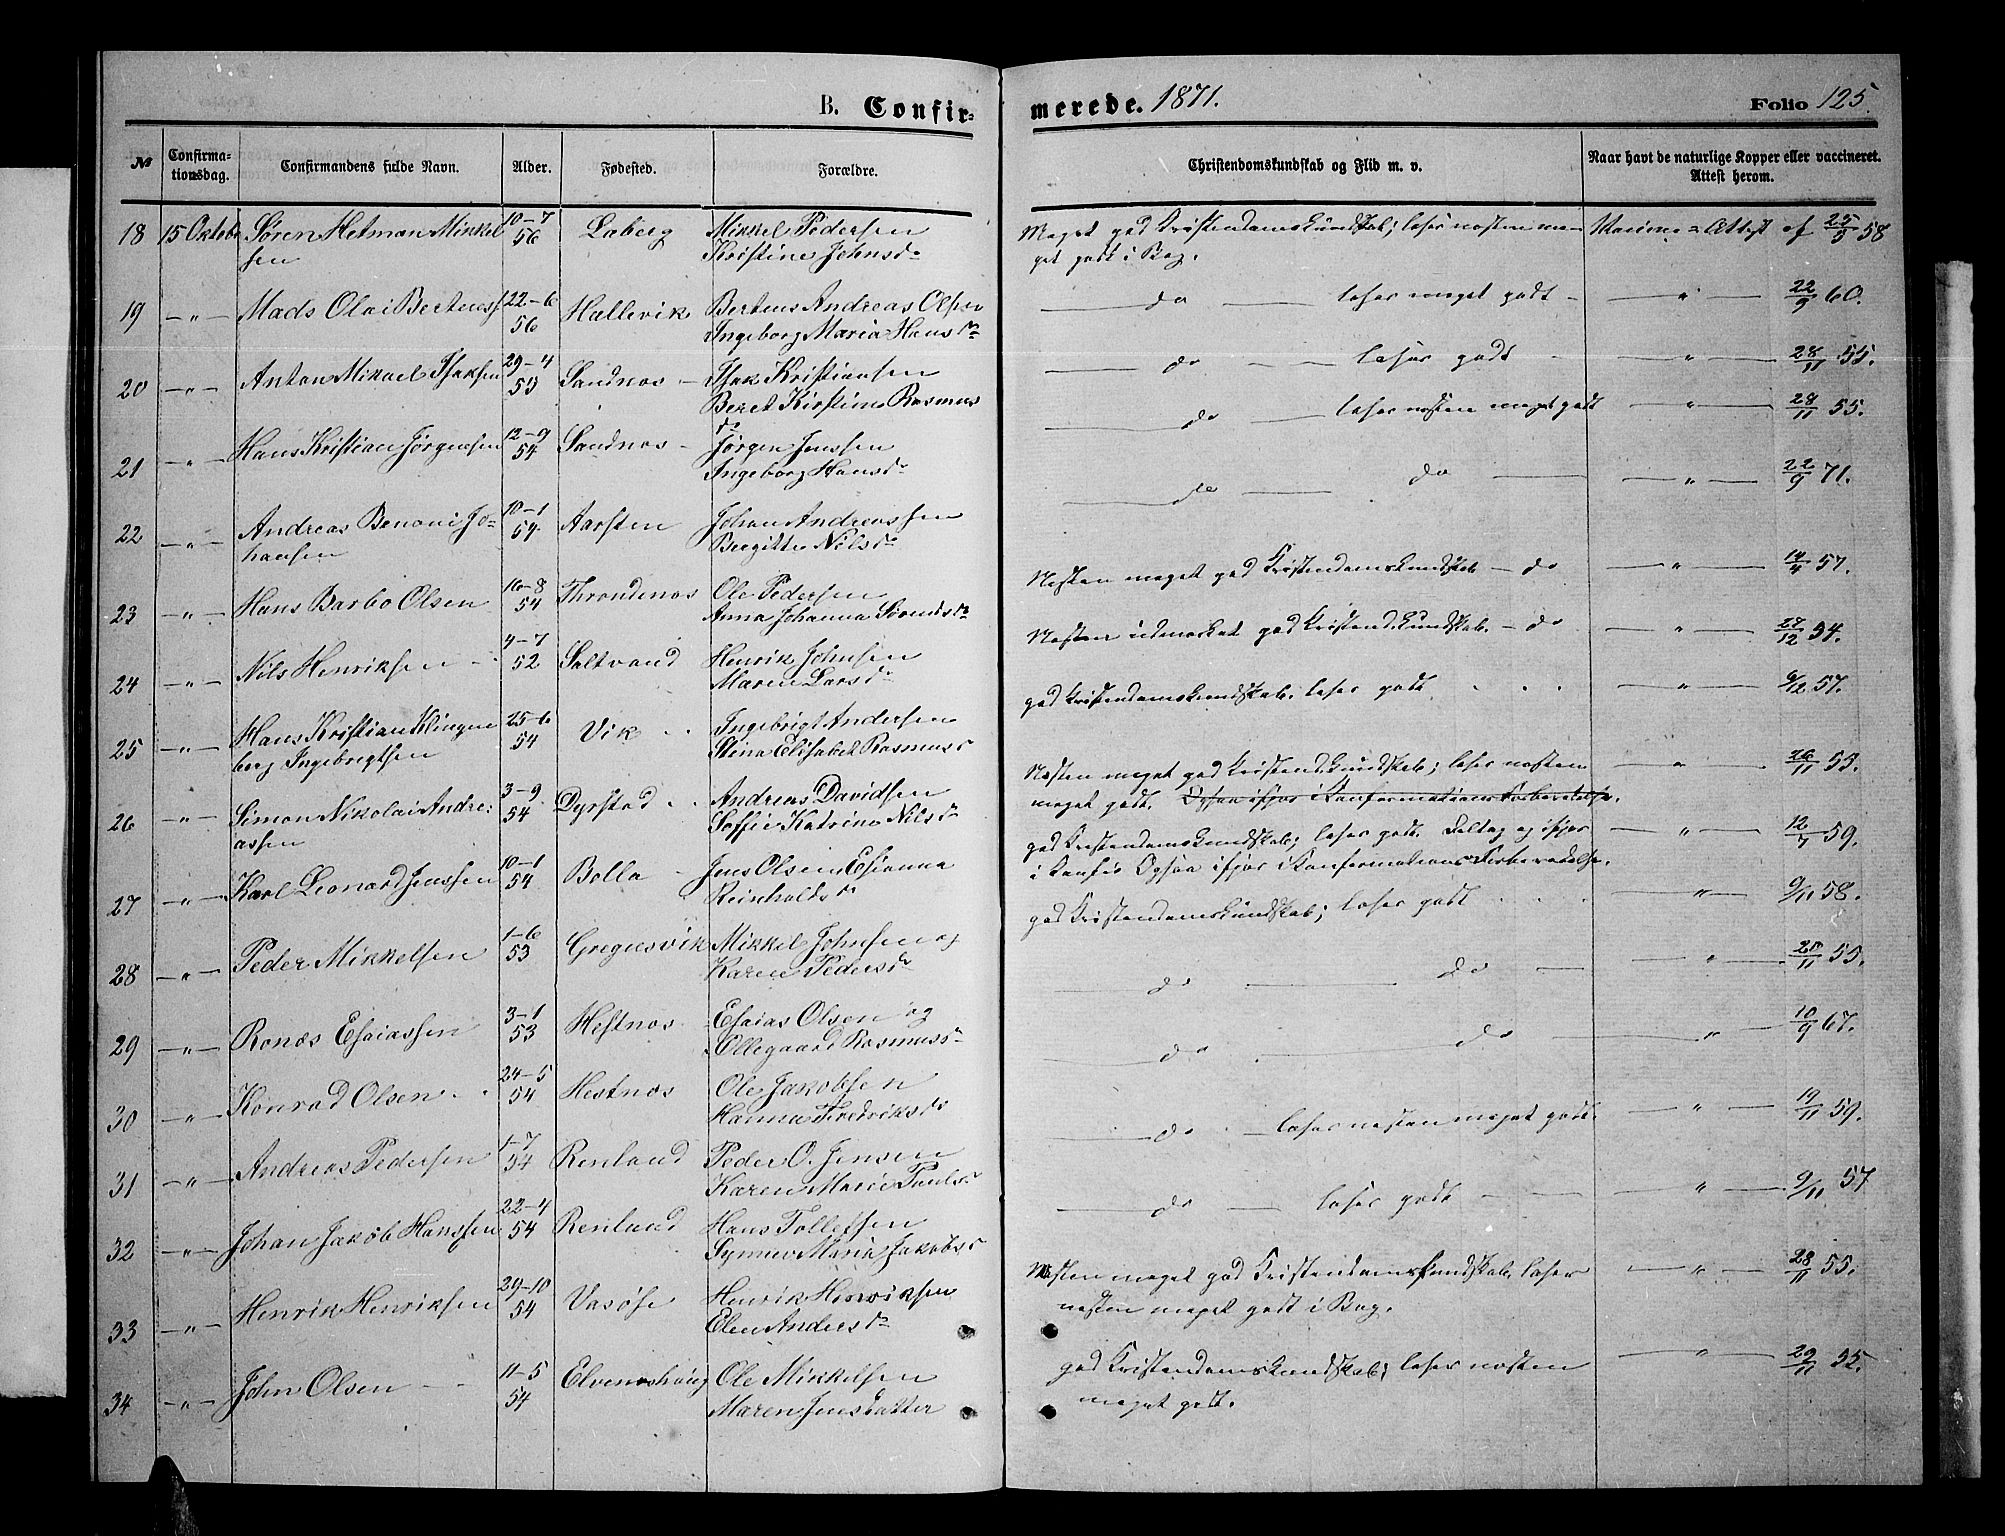 B. Confir-
merede. 1871.
Folio 125.
№
Confirma-
tionsdag.
Confirmandens fulde Navn.
Alder.
Fødested.
Forældre.
Christendomskundskab og Flid m. v.
Naar havt de naturlige Kopper eller vaccineret.
Attest herom.
18 15 Oktober Søren Hetman Mikkel
sen
10-7
56
Laberg
Mikkel Pedersen
Kristine Johnsdr
Meget god Kristendomskundskab; læser næsten me-
get godt i Bog.
Vaccine = Attest af 25/5 58
19 -"- Mads Olai Bertheuss
22-6
56
Hallevik
Berteus Andreas Olsen
Ingeborg Maria Hansdr
do læser meget godt - " - 22/9 60.
20 -"- Anton Mikael Isaksen
29-4
53
Sandnæs -
Isak Kristiansen
Beret Kirstine Rasmus
dr
do læser godt - " - 28/11 55.
21 -"- Hans Kristian Jørgensen
12-9
54
Sandnæs -
Jørgen Jenssen
Ingeborg Hansdr
do læser næsten meget godt - " - 28/11 55.
22 -"- Andreas Benoni Jo-
hansen
10-1
54
Aarsten
Johan Andreassen
Bergitte Nilsdr
do do - " - 22/9 71.
23 -"- Hans Barbo Olsen
16-8
54
Throndenæs
Ole Pedersen
Anna Johanna Sørensdr
Næsten meget god Kristendomskundskab - do - " - 14/4 57.
24 -"- Nils Henriksen
4-7
52
Saltvand
Henrik Johnsen
Maren Larsdr
Næsten udmærket god Kristendskundskab. - do - " - 27/12 54.
25 -"- Hans Kristian Klingen
berg Ingebrigtsen
25-6
54
Vik
Ingebrigt Andersen
Stina Elisabet Rasmus
god Kristendomskundskab. læser godt. - " - 9/12 57.
26 -"- Simon Nikolai Andre-
assen
3-9
54
Dyrstad
Andreas Davidsen
Soffie Katrine Nilsdr
Næsten meget god Kristendskundskab; læser næsten
meget godt. Ogsaa ifjor i Konfirmationsforberedelse.
- " - 26/11 55.
27 -"- Karl Leonard Jenssen
10-1
54
Bolla
Jens Olsen Esianna
Reinholdsdr
god Kristendomskundskab; læser godt. Deltog og ifjor
i Konfir Ogsaa ifjor i Konfirmations-Forberedelse.
- " - 12/7 59.
28 -"- Peder Mikkelsen
1-6
53
Gregusvik
Mikkel Johnsen og
Karen Pedersdr
god Kristendomskundskab; læser godt - " - 9/11 58.
29 -"- Ronæs Esaiassen
3-1
53
Hestnæs
Esaias Olsen og
Ollegaard Rasmusdr
do do - " - 20/11 55.
30 -"- Konrad Olsen
24-5
54
Hestnæs
Ole Jakobsen
Hanna Fredriksdr
do do " 10/9 67.
31 -"- Andreas Pedersen
1-7
54
Renland
Peder O. Jensen
Karen Marie Pauls
do - læser næsten meget godt. - " - 19/11 59.
32 -"- Johan Jakob Hanssen
22-4
54
Renland
Hans Tollefsen
Synnev Maria Jakobs
do - læser godt - " - 9/11 57
33 -"- Henrik Henriksen
29-10
54
Vasøse
Henrik Henriksen
Elen Andersdr
Næsten meget god Kristendomskundskab. læser
næsten meget godt i Bog.
- " - 28/11 55.
34 -"- John Olsen
11-5
54
Elveneshaug
Ole Mikkelsen
Maren Jensdatter
god Kristendomskundskab; læser næsten
meget godt.
- " - 29/11 55.